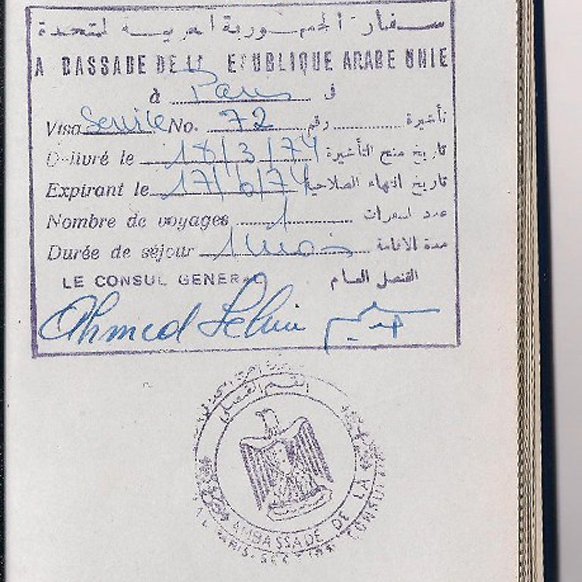 سفارة الجمهورية العربية المتحدة
A BASSADE DE L EPUBLIQUE ARABE UNIE
à Paris في
Visa Service No. 72 رقم تأشيرة
Délivré le 18/3/74 تاريخ منح التأشيرة
Expirant le 17/6/74 تاريخ انتهاء الصلاحية
Nombre de voyages 1 عدد السفرات
Durée de séjour 1 mois مدة الاقامة
LE CONSUL GENERAL القنصل العام
Ahmed Selim
القسم القنصلي
AMBASSADE DE LA
CONSUL